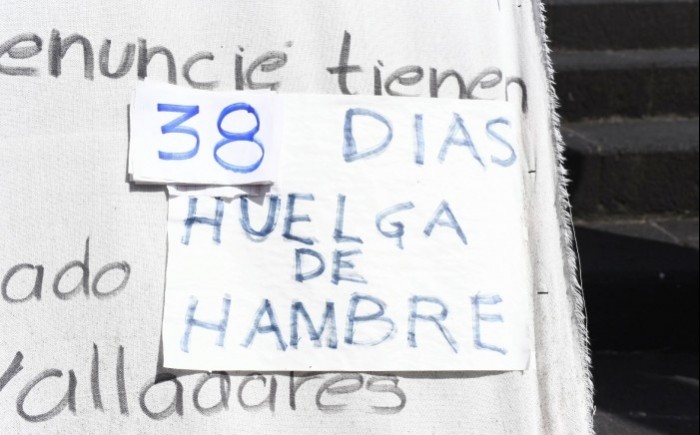 enuncie tienen
38 DIAS
HUELGA
DE
HAMBRE
ado
Valladares